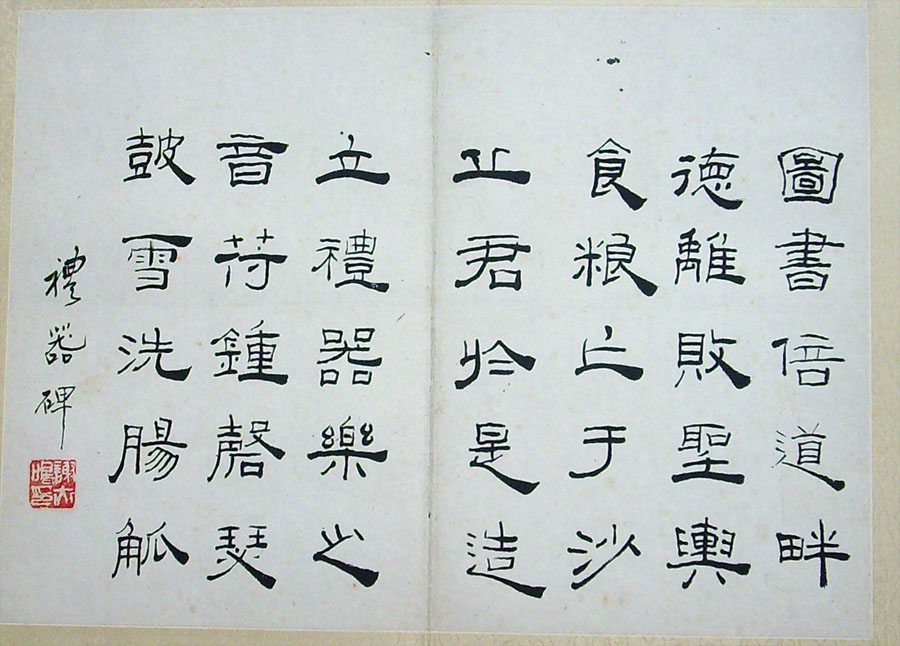 圖書倍道畔
徳離敗聖輿
食粮亡于沙
丘君於是造
立禮器樂之
音苻鍾磬瑟
皷雪洗觴觚
禮器碑